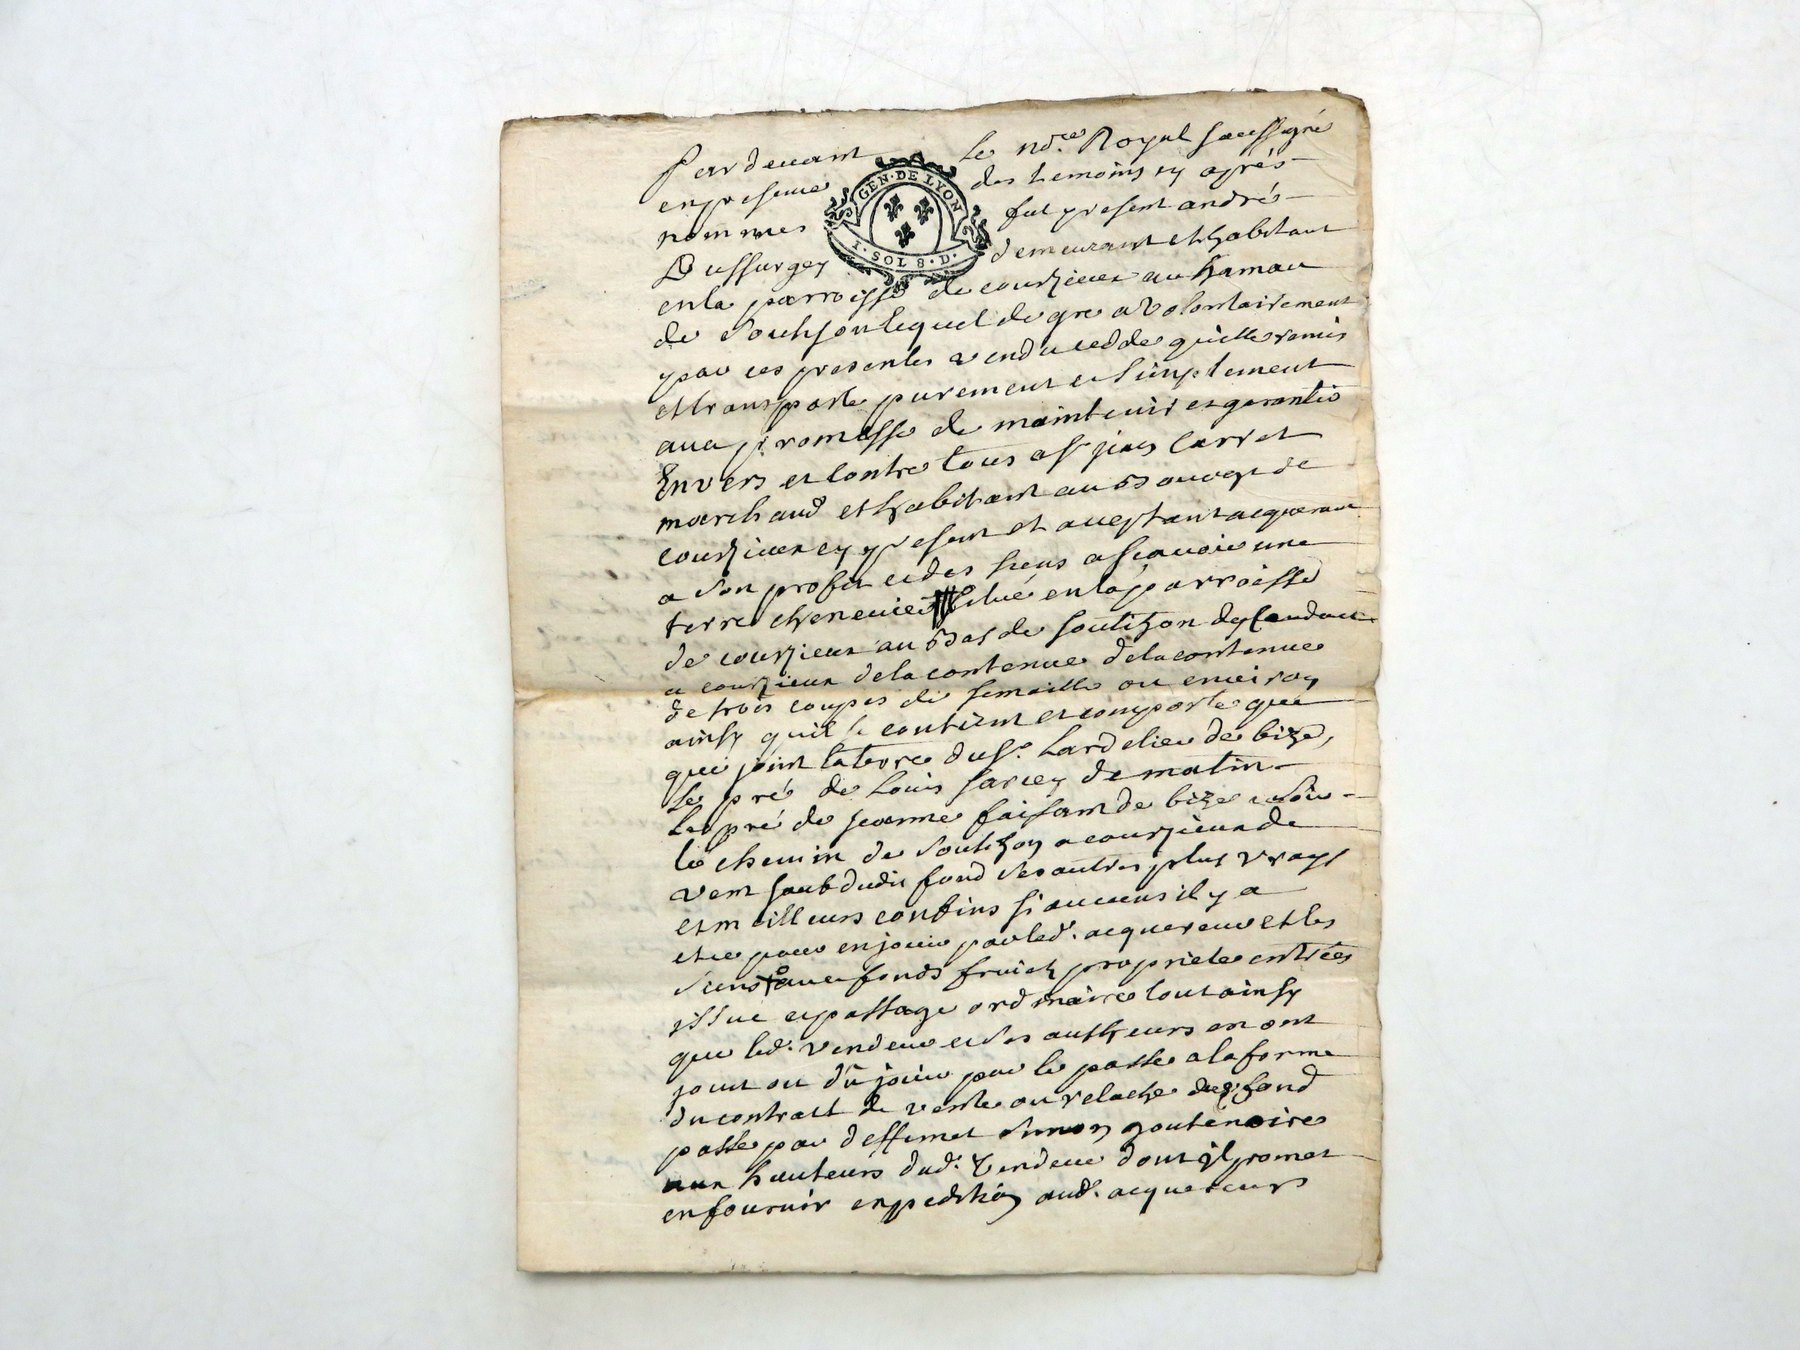 Pardevant le no.re Royal soussigné
en presence des temoins cy aprés
nommes fut present andrés
GEN·DE LYON
1·SOL 8·D·
Dussurgey demeurant et habitant
en la parroisse de courzieux au hamau
de Souhson lequel de gre a volontairement
par ces presentes vendu cedde quitte remis
et transporte purement et simplement
avec promesse de maintenir et garantie
Envers et contre tous a s.r jean Carret
marchand et habitant au bourge de
courzieux cy present et aceptant aquereur
a son profit et des siens ascavoir une
terre cheneuier située en la parroisse
de courzieux au bas de soutizon
a courzieux de la contenue de la contenue
de trois coupes de semaille ou environ
ainsy quil se contient et comporte que
que joint la terre du s.r Lardelier de bize,
Le pré de Louis Sarcey de matin
Le pré de jeanne faisant de bize et soir
le chemin de soutizon a courzieux de
vent sauf dudit fond ses autres plus vrays
et meilleurs confins si aucuns il y a
et ce pour en jouir par led. aquereur et les
siens avec fonds fruicts proprietes entrées
issue et passage ordinaire tout ainsy
que led. vendeur et ses autheurs en ont
jouit ou dû jouir par le passe a la forme
du contract de vente ou relache dud. fond
passe par deffunct simon goutenoire
aux hauteurs dud. vendeur dont il promet
en fournir expedition aud. acquereurs